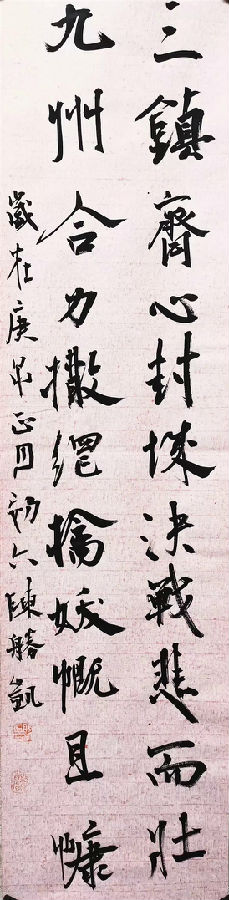 三鎮齊心封城決戰悲而壯
九州合力撒網擒妖慨且慷
歲在庚子正月初六陳勝凱